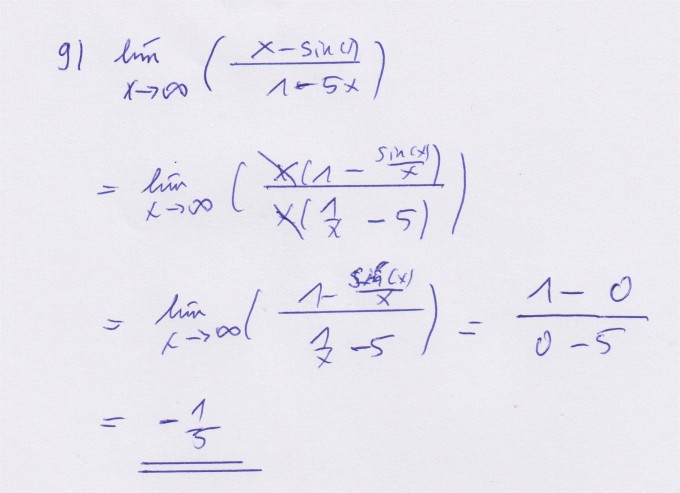 g) lim x→∞ ( (x - sin(x)) / (1 - 5x) )
= lim x→∞ ( x(1 - sin(x)/x) / x(1/x - 5) )
= lim x→∞ ( (1 - sin(x)/x) / (1/x - 5) ) = (1 - 0) / (0 - 5)
= -1/5